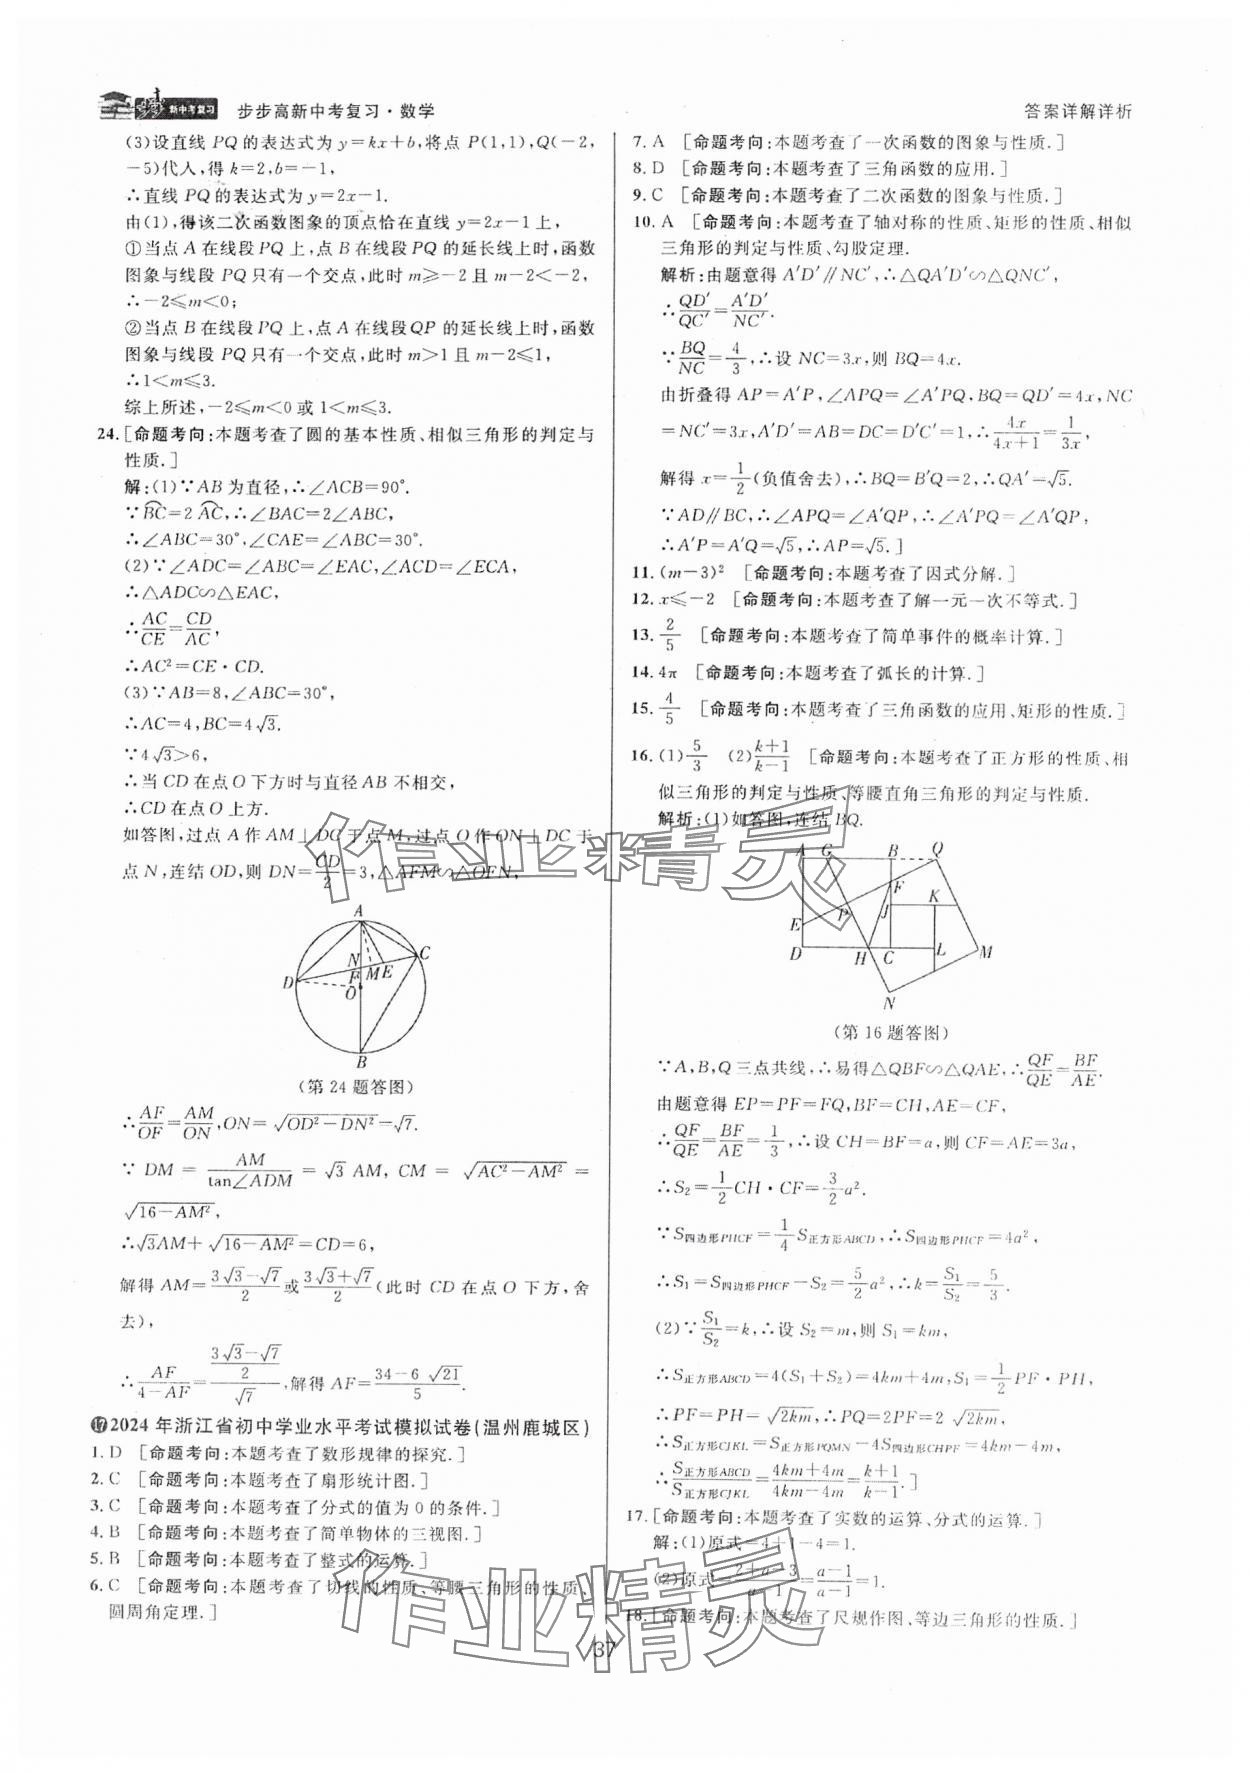 新中考复习 步步高新中考复习·数学
答案详解详析
(3)设直线 PQ 的表达式为 y=kx+b,将点 P(1,1),Q(-2,
-5)代人,得 k=2,b=-1,
∴直线 PQ 的表达式为 y=2x-1.
由(1),得该二次函数图象的顶点恰在直线 y=2x-1 上,
①当点 A 在线段 PQ 上,点 B 在线段 PQ 的延长线上时,函数
图象与线段 PQ 只有一个交点,此时 m⩾-2 且 m-2<-2,
∴-2⩽m<0;
②当点 B 在线段 PQ 上,点 A 在线段 QP 的延长线上时,函数
图象与线段 PQ 只有一个交点,此时 m>1 且 m-2⩽1,
∴1<m⩽3.
综上所述,-2⩽m<0 或 1<m⩽3.
24.[命题考向:本题考查了圆的基本性质、相似三角形的判定与
性质.]
解:(1)∵AB 为直径,∴∠ACB=90°.
∵BC=2 AC,∴∠BAC=2∠ABC,
∴∠ABC=30°,∠CAE=∠ABC=30°.
(2)∵∠ADC=∠ABC=∠EAC,∠ACD=∠ECA,
∴△ADC∽△EAC,
∴AC/CE=CD/AC,
∴AC²=CE·CD.
(3)∵AB=8,∠ABC=30°,
∴AC=4,BC=4√3.
∵4√3>6,
∴当 CD 在点 O 下方时与直径 AB 不相交,
∴CD 在点 O 上方.
如答图,过点 A 作 AM⊥DC 于点 M,过点 O 作 ON⊥DC 于
点 N,连结 OD,则 DN=CD/2=3,△AFM∽△OFN,
A
N
C
D
F
M E
O
B
(第 24 题答图)
∴AF/OF=AM/ON,ON=√(OD²-DN²)=√7.
∵ DM = AM/tan∠ADM = √3 AM, CM = √(AC²-AM²) =
√(16-AM²),
∴√3AM+√(16-AM²)=CD=6,
解得 AM=(3√3-√7)/2 或 (3√3+√7)/2(此时 CD 在点 O 下方,舍
去),
∴AF/(4-AF)=((3√3-√7)/2)/√7,解得 AF=(34-6√21)/5.
⑰2024 年浙江省初中学业水平考试模拟试卷(温州鹿城区)
1. D [命题考向:本题考查了数形规律的探究.]
2. C [命题考向:本题考查了扇形统计图.]
3. C [命题考向:本题考查了分式的值为 0 的条件.]
4. B [命题考向:本题考查了简单物体的三视图.]
5. B [命题考向:本题考查了整式的运算.]
6. C [命题考向:本题考查了切线的性质、等腰三角形的性质、
圆周角定理.]
7. A [命题考向:本题考查了一次函数的图象与性质.]
8. D [命题考向:本题考查了三角函数的应用.]
9. C [命题考向:本题考查了二次函数的图象与性质.]
10. A [命题考向:本题考查了轴对称的性质、矩形的性质、相似
三角形的判定与性质、勾股定理.
解析:由题意得 A′D′∥NC′,∴△QA′D′∽△QNC′,
∴QD′/QC′=A′D′/NC′.
∵BQ/NC=4/3,∴设 NC=3x,则 BQ=4x.
由折叠得 AP=A′P,∠APQ=∠A′PQ,BQ=QD′=4x,NC
=NC′=3x,A′D′=AB=DC=D′C′=1,∴4x/(4x+1)=1/3x,
解得 x=1/2(负值舍去),∴BQ=B′Q=2,∴QA′=√5.
∵AD∥BC,∴∠APQ=∠A′QP,∴∠A′PQ=∠A′QP,
∴A′P=A′Q=√5,∴AP=√5.]
11. (m-3)² [命题考向:本题考查了因式分解.]
12. x⩽-2 [命题考向:本题考查了解一元一次不等式.]
13. 2/5 [命题考向:本题考查了简单事件的概率计算.]
14. 4π [命题考向:本题考查了弧长的计算.]
15. 4/5 [命题考向:本题考查了三角函数的应用、矩形的性质.]
16. (1)5/3 (2)(k+1)/(k-1) [命题考向:本题考查了正方形的性质、相
似三角形的判定与性质、等腰直角三角形的判定与性质.
解析:(1)如答图,连结 BQ.
A G B Q
F
P J K
E
D H C L M
N
(第 16 题答图)
∵A,B,Q 三点共线,∴易得△QBF∽△QAE,∴QF/QE=BF/AE.
由题意得 EP=PF=FQ,BF=CH,AE=CF,
∴QF/QE=BF/AE=1/3,∴设 CH=BF=a,则 CF=AE=3a,
∴S₂=1/2CH·CF=3/2a².
∵S四边形PHCF=1/4S正方形ABCD,∴S四边形PHCF=4a²,
∴S₁=S四边形PHCF-S₂=5/2a²,∴k=S₁/S₂=5/3.
(2)∵S₁/S₂=k,∴设 S₂=m,则 S₁=km,
∴S正方形ABCD=4(S₁+S₂)=4km+4m,S₁=1/2PF·PH,
∴PF=PH=√(2km),PQ=2PF=2√(2km),
∴S正方形CJKL=S正方形PQMN-4S四边形CHPF=4km-4m,
∴S正方形ABCD/S正方形CJKL=(4km+4m)/(4km-4m)=(k+1)/(k-1).]
17. [命题考向:本题考查了实数的运算、分式的运算.]
解:(1)原式=4+1-4=1.
(2)原式=(2+a-3)/(a-1)=(a-1)/(a-1)=1.
18. [命题考向:本题考查了尺规作图、等边三角形的性质.]
37
作业精灵
作业精灵